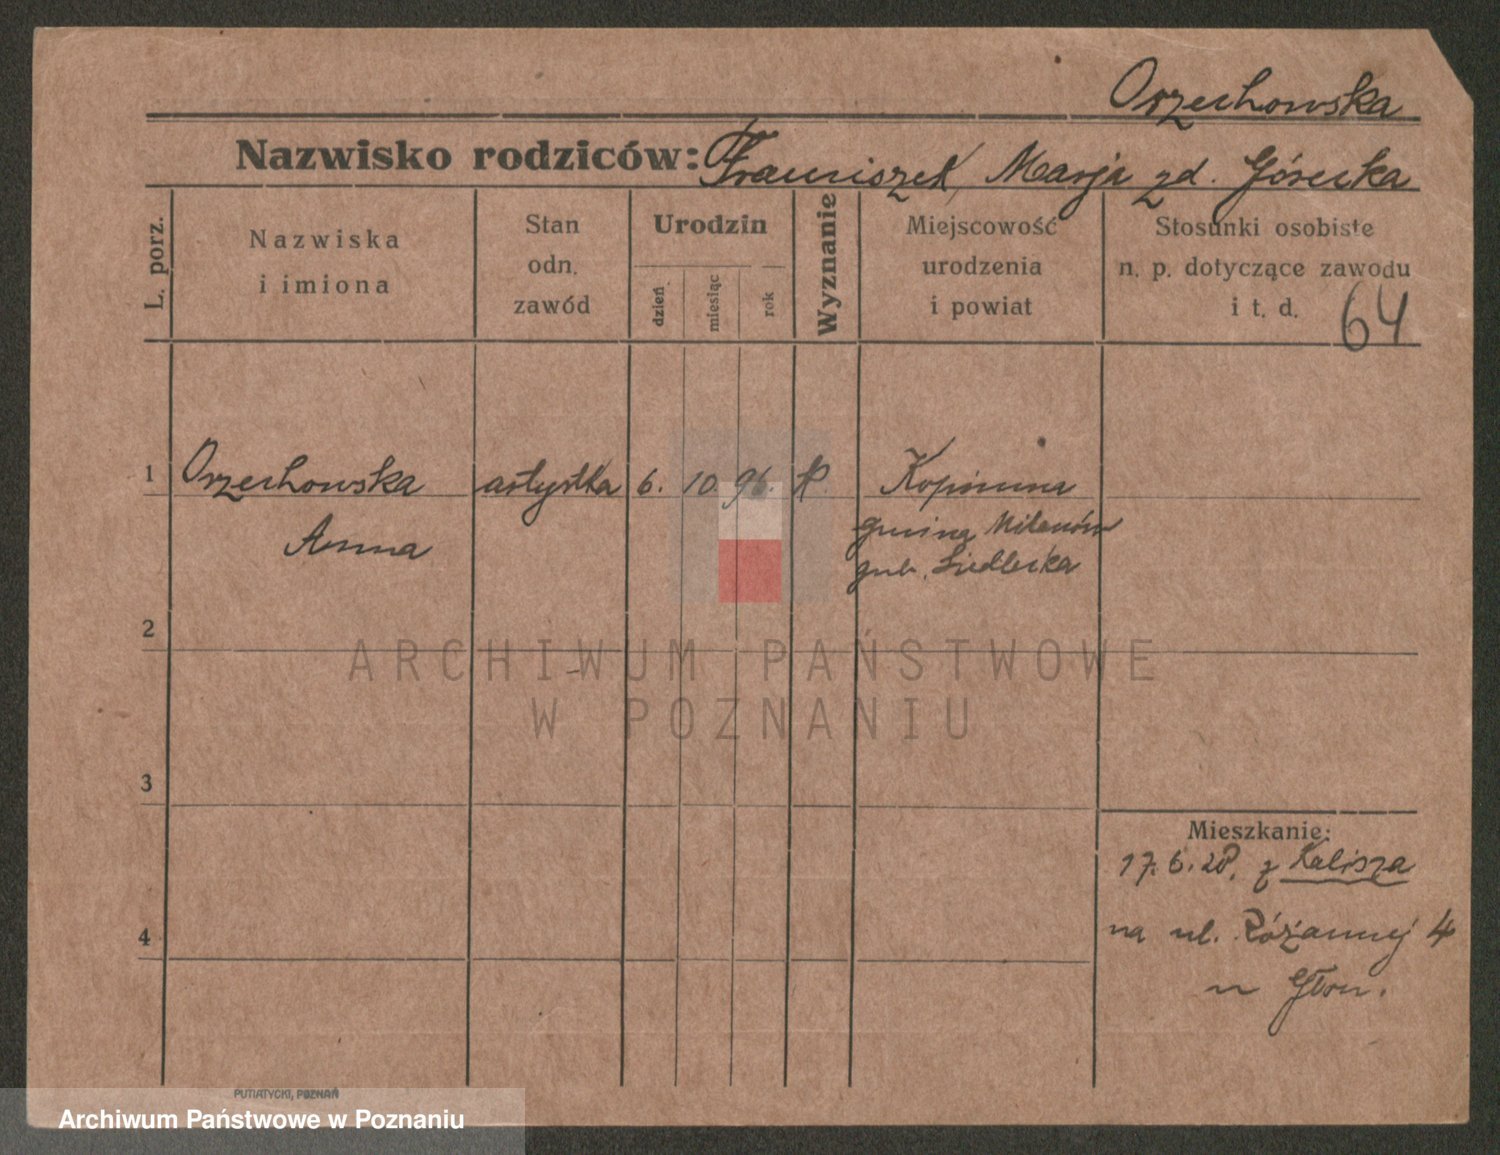 Orzechowska
Nazwisko rodziców: Franciszek, Marja zd. Górecka
L. porz.
Nazwiska
i imiona
Stan
odn.
zawód
Urodzin
dzień
miesiąc
rok
Wyznanie
Miejscowość
urodzenia
i powiat
Stosunki osobiste
n. p. dotyczące zawodu
i t. d.
64
1 Orzechowska artystka 6. 10. 96. k.
Anna
Kopinina
gmina Milanów
gub. Siedlecka
2
3
4
Mieszkanie:
17.6.28. z Kalisza
na ul. Różannej 4
ARCHIWUM PAŃSTWOWE
W POZNANIU
PUTIATYCKI, POZNAŃ
Archiwum Państwowe w Poznaniu